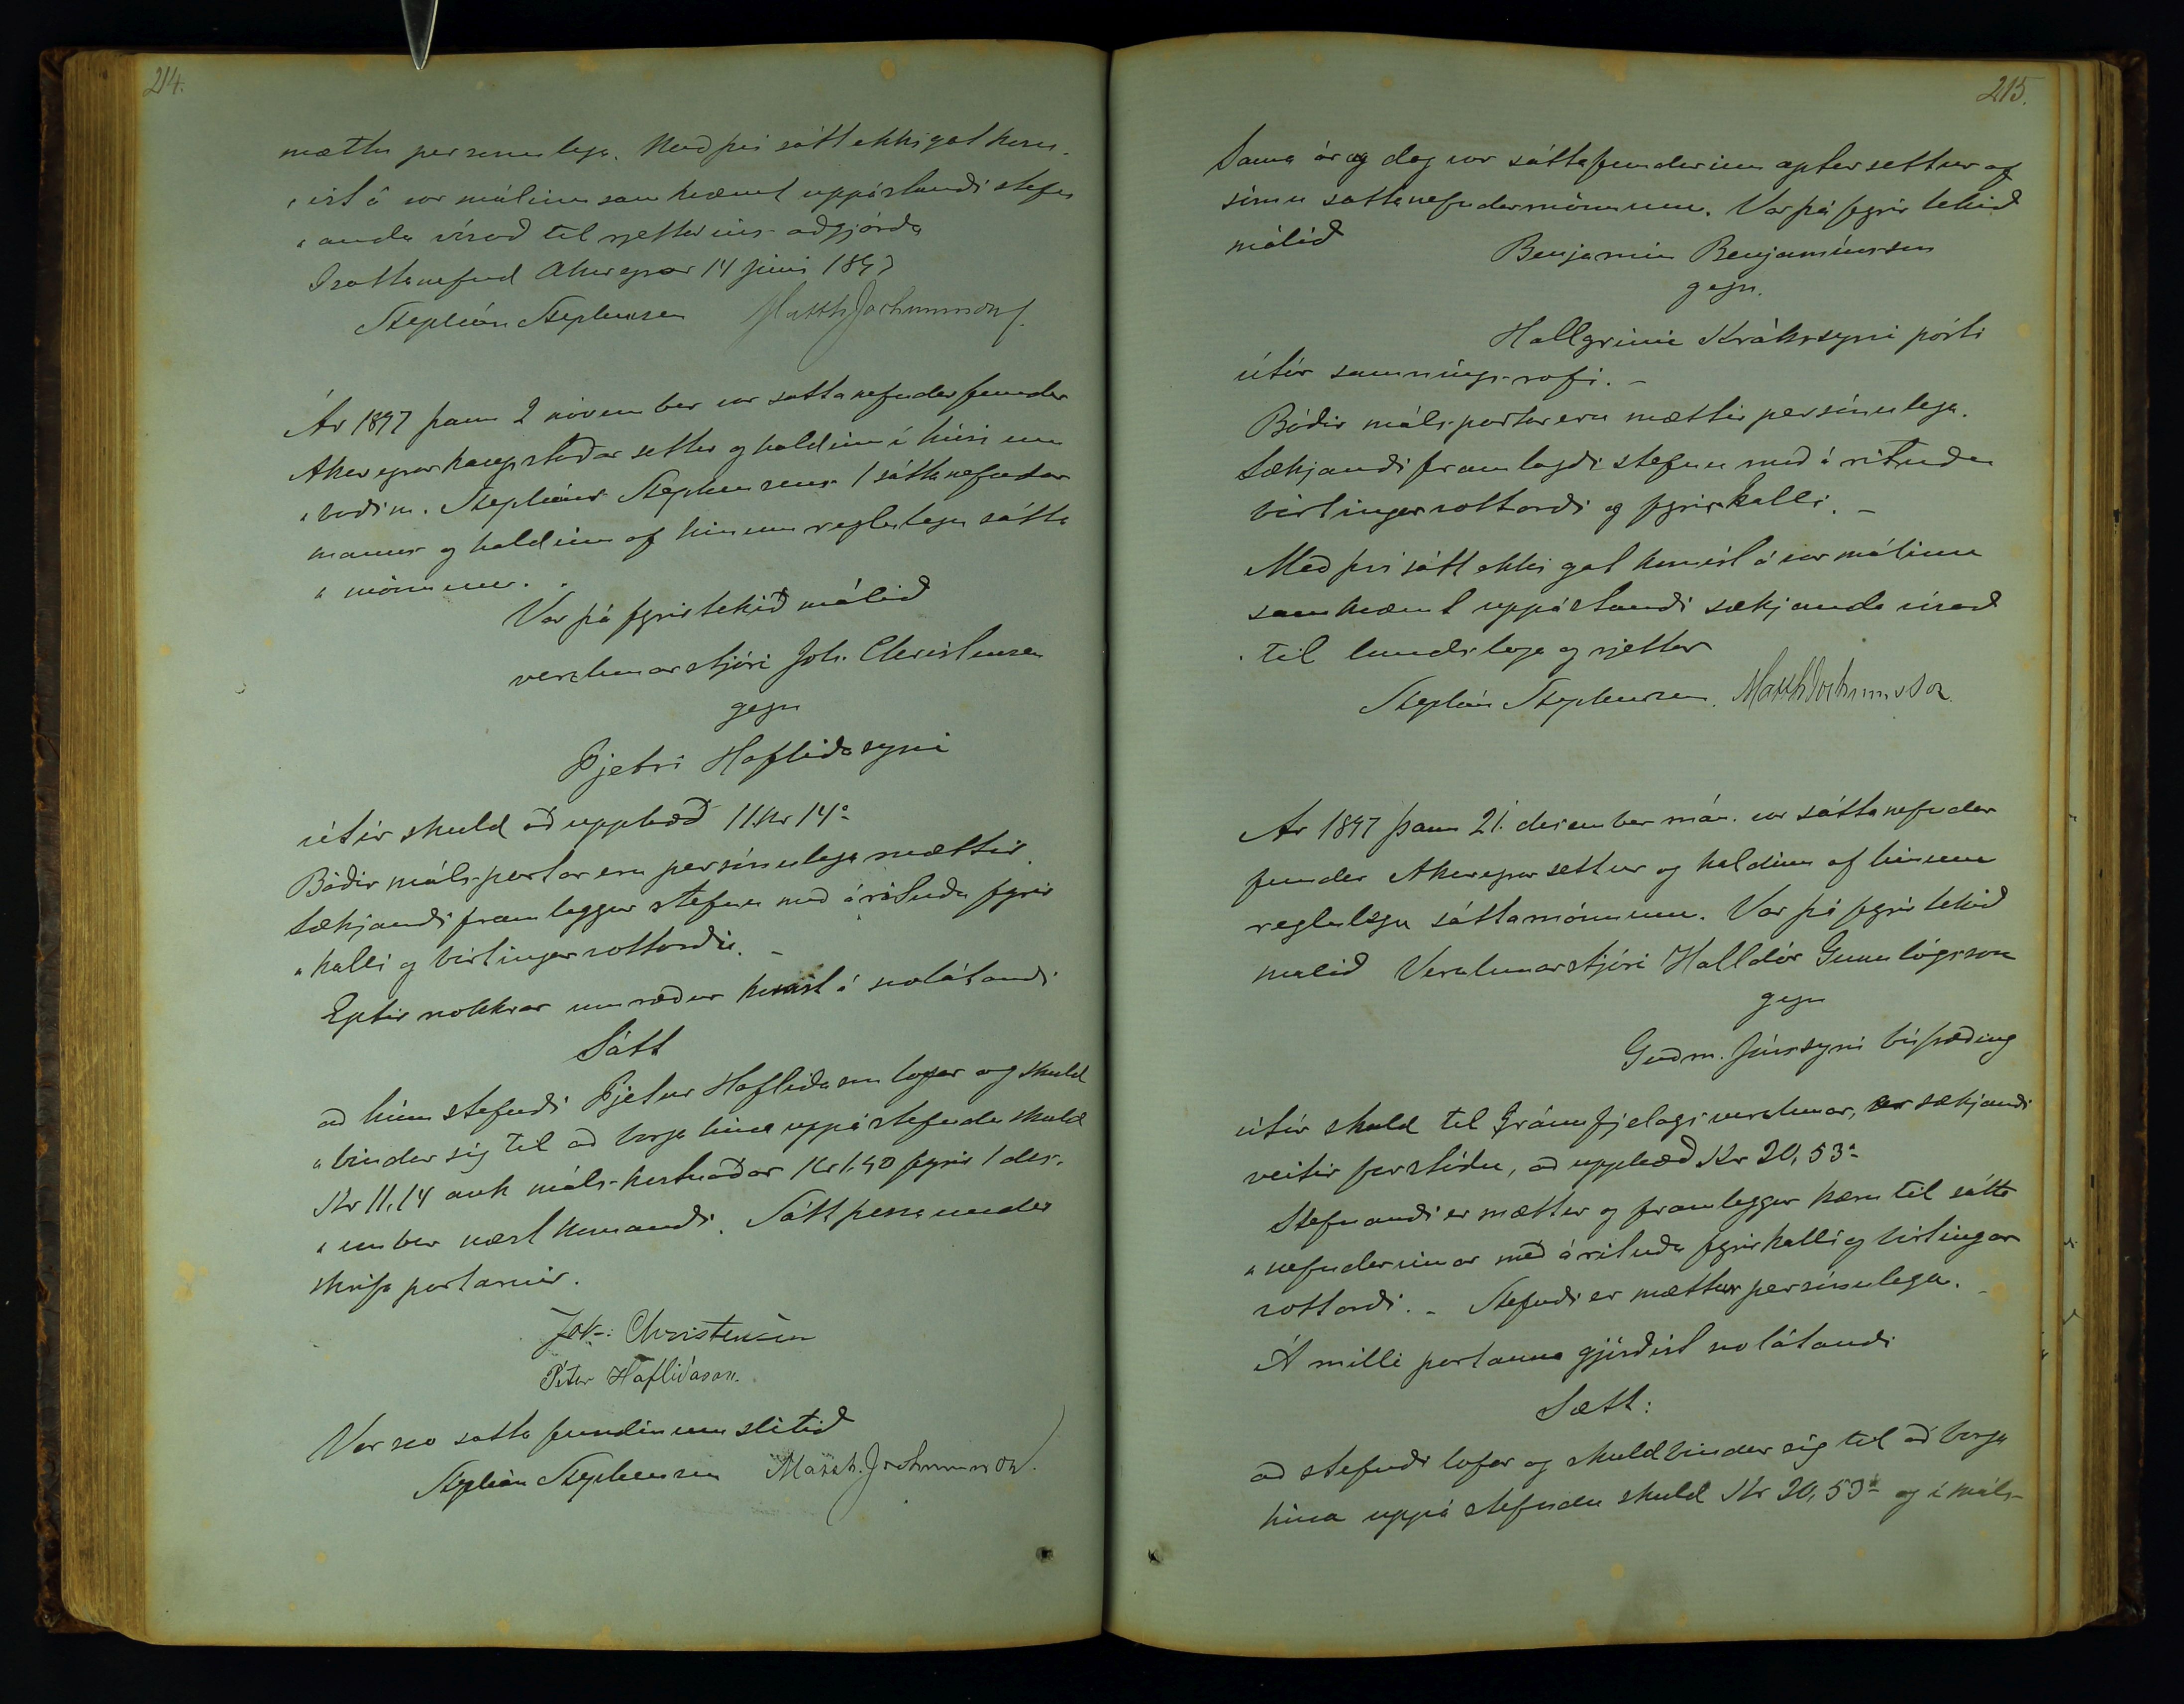 214.
mættu persónulega. Með því sátt ekki gat kom-
„ist á var málinu samkvæmt uppástandi stefn
„anda vísað til rjettarins aðgjörða
Sáttanefnd Akureyrar 14 júní 1897
Stephán Stephensen Matth Jochumsson
Ár 1897 þann 2 nóvember var sáttanefndarfundur
Akureyrarkaupstaðar settur og haldinn í húsi um
„boðsm. Stepháns Stephensens 1 sáttanefndar
manns og haldinn af hinum reglulegu sátta
„mönnum.
Var þá fyrirtekið málið
verzlunarstjóri Joh. Christensen
gegn
Pjetri Hafliðasyni
útúr skuld að upphæð 11 Kr 14 a
Báðir málspartar eru persónulega mættir.
Sækjandi framleggur stefnu með árituðu fyrir
„kalli og birtingarvottorði. –
Eptir nokkrar umræður komst á svolátandi
Sátt
að hinn stefndi Pjetur Hafliðason lofar og skuld
„bindur sig til að borga hina uppástefndu skuld
Kr 11,14 auk máls-kostnaðar Kr 1.40 fyrir 1 des.
„ember næst komandi. Sátt þessa under
skrifa partarnir.
Joh: Christensen
Pétur Hafliðason.
Var svo sátta fundinum slitið
Stephán Stephensen Matth. Jochumsson.
215.
Sama ár og dag var sáttafundurinn aptur settur af
sömu sáttanefndarmönnum. Var þá fyrir tekið
málið
Benjamín Benjamínsson
gegn.
Hallgrími Krákssyni pósti
útúr samningsrofi. –
Báðir máls-partar eru mættir persónulega.
Sækjandi framlagði stefnu með árituðu
birtingarvottorði og fyrirkalli. –
Með því sátt ekki gat komist á var málinu
samkvæmt uppástandi sækjanda vísað
til landslaga og rjettar
Stephán Stephensen. Matth Jochumsson.
Ár 1897 þann 21. desember mán. var sáttanefndar
fundur Akureyrar settur og haldinn af hinum
reglulegu sáttamönnum. Var þá fyrir tekið
málið Verzlunarstjóri Halldór Gunnlögsson
gegn
Guðm. Jónssyni búfræðing
útúr skuld til Gránufjelagsverzlunar, er sækjandi
veitir forstöðu, að upphæð Kr 20,53 a
Stefnandi er mættur og framleggur kæru til sátta
„nefndarinnar með árituðu fyrirkalli og birtingar
vottorði. – Stefndi er mættur persónulega. –
Á milli partanna gjörðist svolátandi
Sætt:
að stefndi lofar og skuldbindur sig til að borga
hina uppá stefndu skuld Kr 20,53 a og í máls-